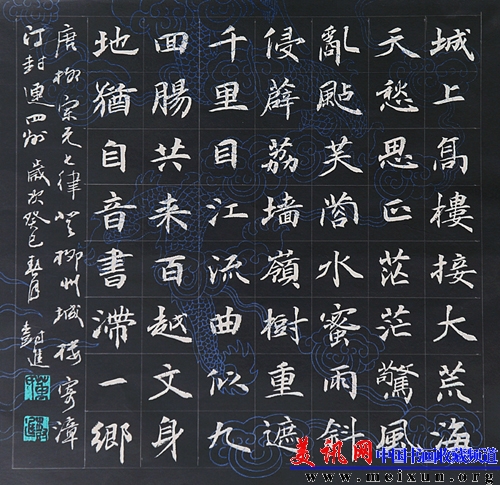 城上髙樓接大荒海
天愁思正茫茫驚風
亂颭芙蓉水蜜雨斜
侵薜荔墙嶺樹重遮
千里目江流曲似九
囬腸共来百越文身
地猶自音書滯一鄉
唐柳宗元七律登柳州城楼寄漳
汀封連四州歲次癸巳月
封進
美讯网
中国书画收藏频道
www.meixun.org